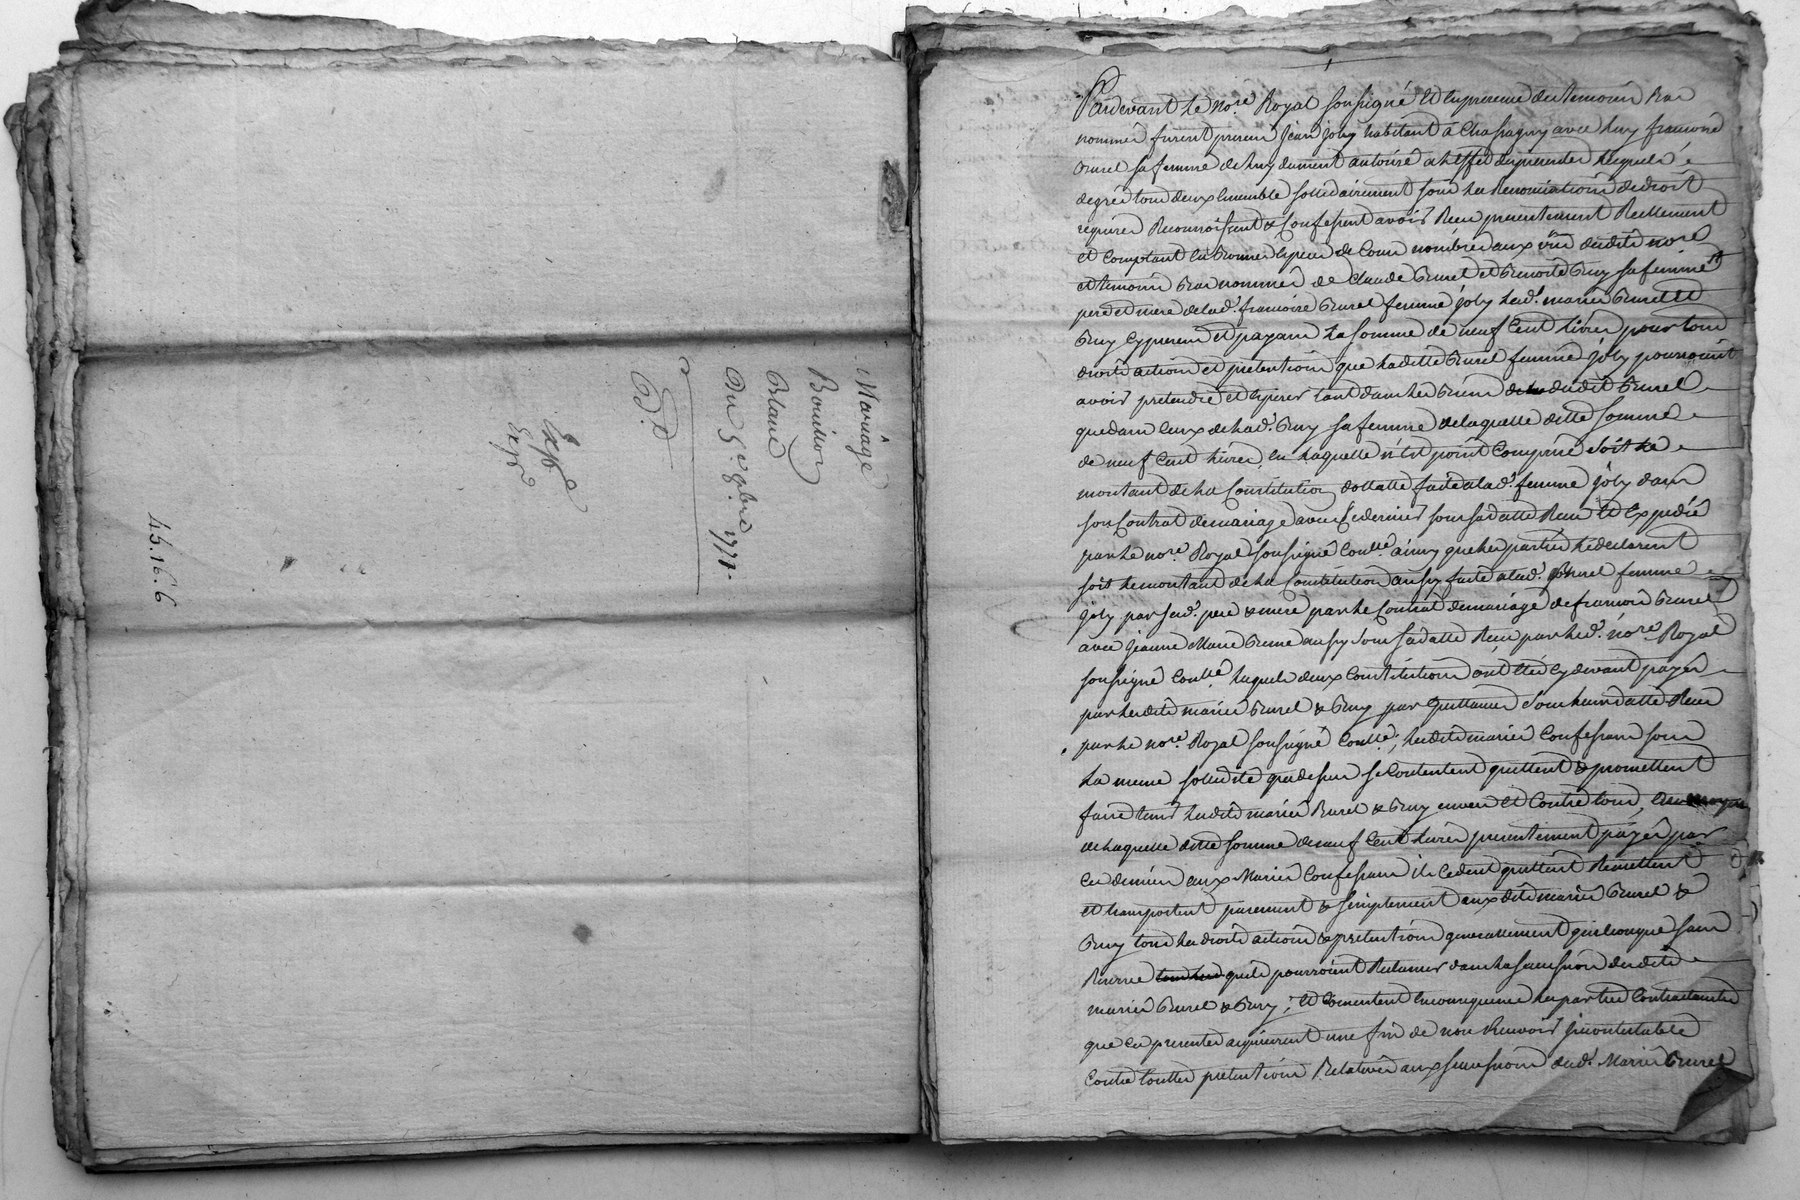 Mariage
Bouillon
Blanc
Du 5e 9bre 1771.
Expe
Expe
45.16.6
Pardevant le nore Royal soussigné et en presence des temoins bas
nommés furent presens Jean joly habitant à Chassagny avec luy francoise
Burel sa femme de luy dument autorisé a l'effet des presentes lesquels
degrés tous deux ensemble sollidairement sous les Renonciations de droit
requises Reconnoissent & Confessent avoir Receu presentement Reellement
et Comptant en bonnes especes de Cour nombrés aux vûe dudits nore
et temoins bas nommés de Claude Burel et Benoite Bruy sa femme
pere et mere de lad. francoise Burel femme joly lesd. mariés Burel et
Bruy cy presens et payans La somme de neuf Cent livres pour tous
droits actions et pretentions que laditte Burel femme joly pourroient
avoir pretendre et esperer tant dans les biens dudit Burel
que dans Ceux de lad. Bruy sa femme de laquelle ditte somme
de neuf Cent livres, en laquelle n'est point Comprise soit le
montant de la Constitution dottalle faite a lad. femme joly dans
son Contrat de mariage avec Ce dernier sous sa datte Receu et Expedié
par le nore Royal soussigné Coulle ainsy que les parties le declarent
soit le montant de la Constitution aussy faite a lad. Burel femme
joly par sesd. pere & mere par le Contrat de mariage de francois Burel
avec jeanne Marie aussy sous sa datte Receu par led. nore Royal
soussigné Coulle lesquels deux Constitutions ont étés cy devant payés
par lesdits mariés Burel & Bruy par quittances sous leurs datte Receu
par le nore Royal soussigné Coulle, lesdits mariés Confessans sous
La meme sollidité que dessus se Contentent quittent & promettent
faire tenir lesdits mariés Burel & Bruy envers et Contre tous, au moyen
de laquelle ditte somme de neuf Cent livres presentement payés par
Ces derniers aux Mariés Confessans ils Cedent quittent Remettent
et transportent purement & simplement aux dits mariés Burel &
Bruy tous les droits actions & pretentions generallement quelconque sans
Reserve qu'ils pourroient Reclamer dans la succession desdits
mariés Burel & Bruy, et Consentent en consequence les parties Contractantes
que ces presentes acquierent une fin de non Recevoir incontestable
Contre touttes pretentions Relatives aux successions desd. Mariés Burel